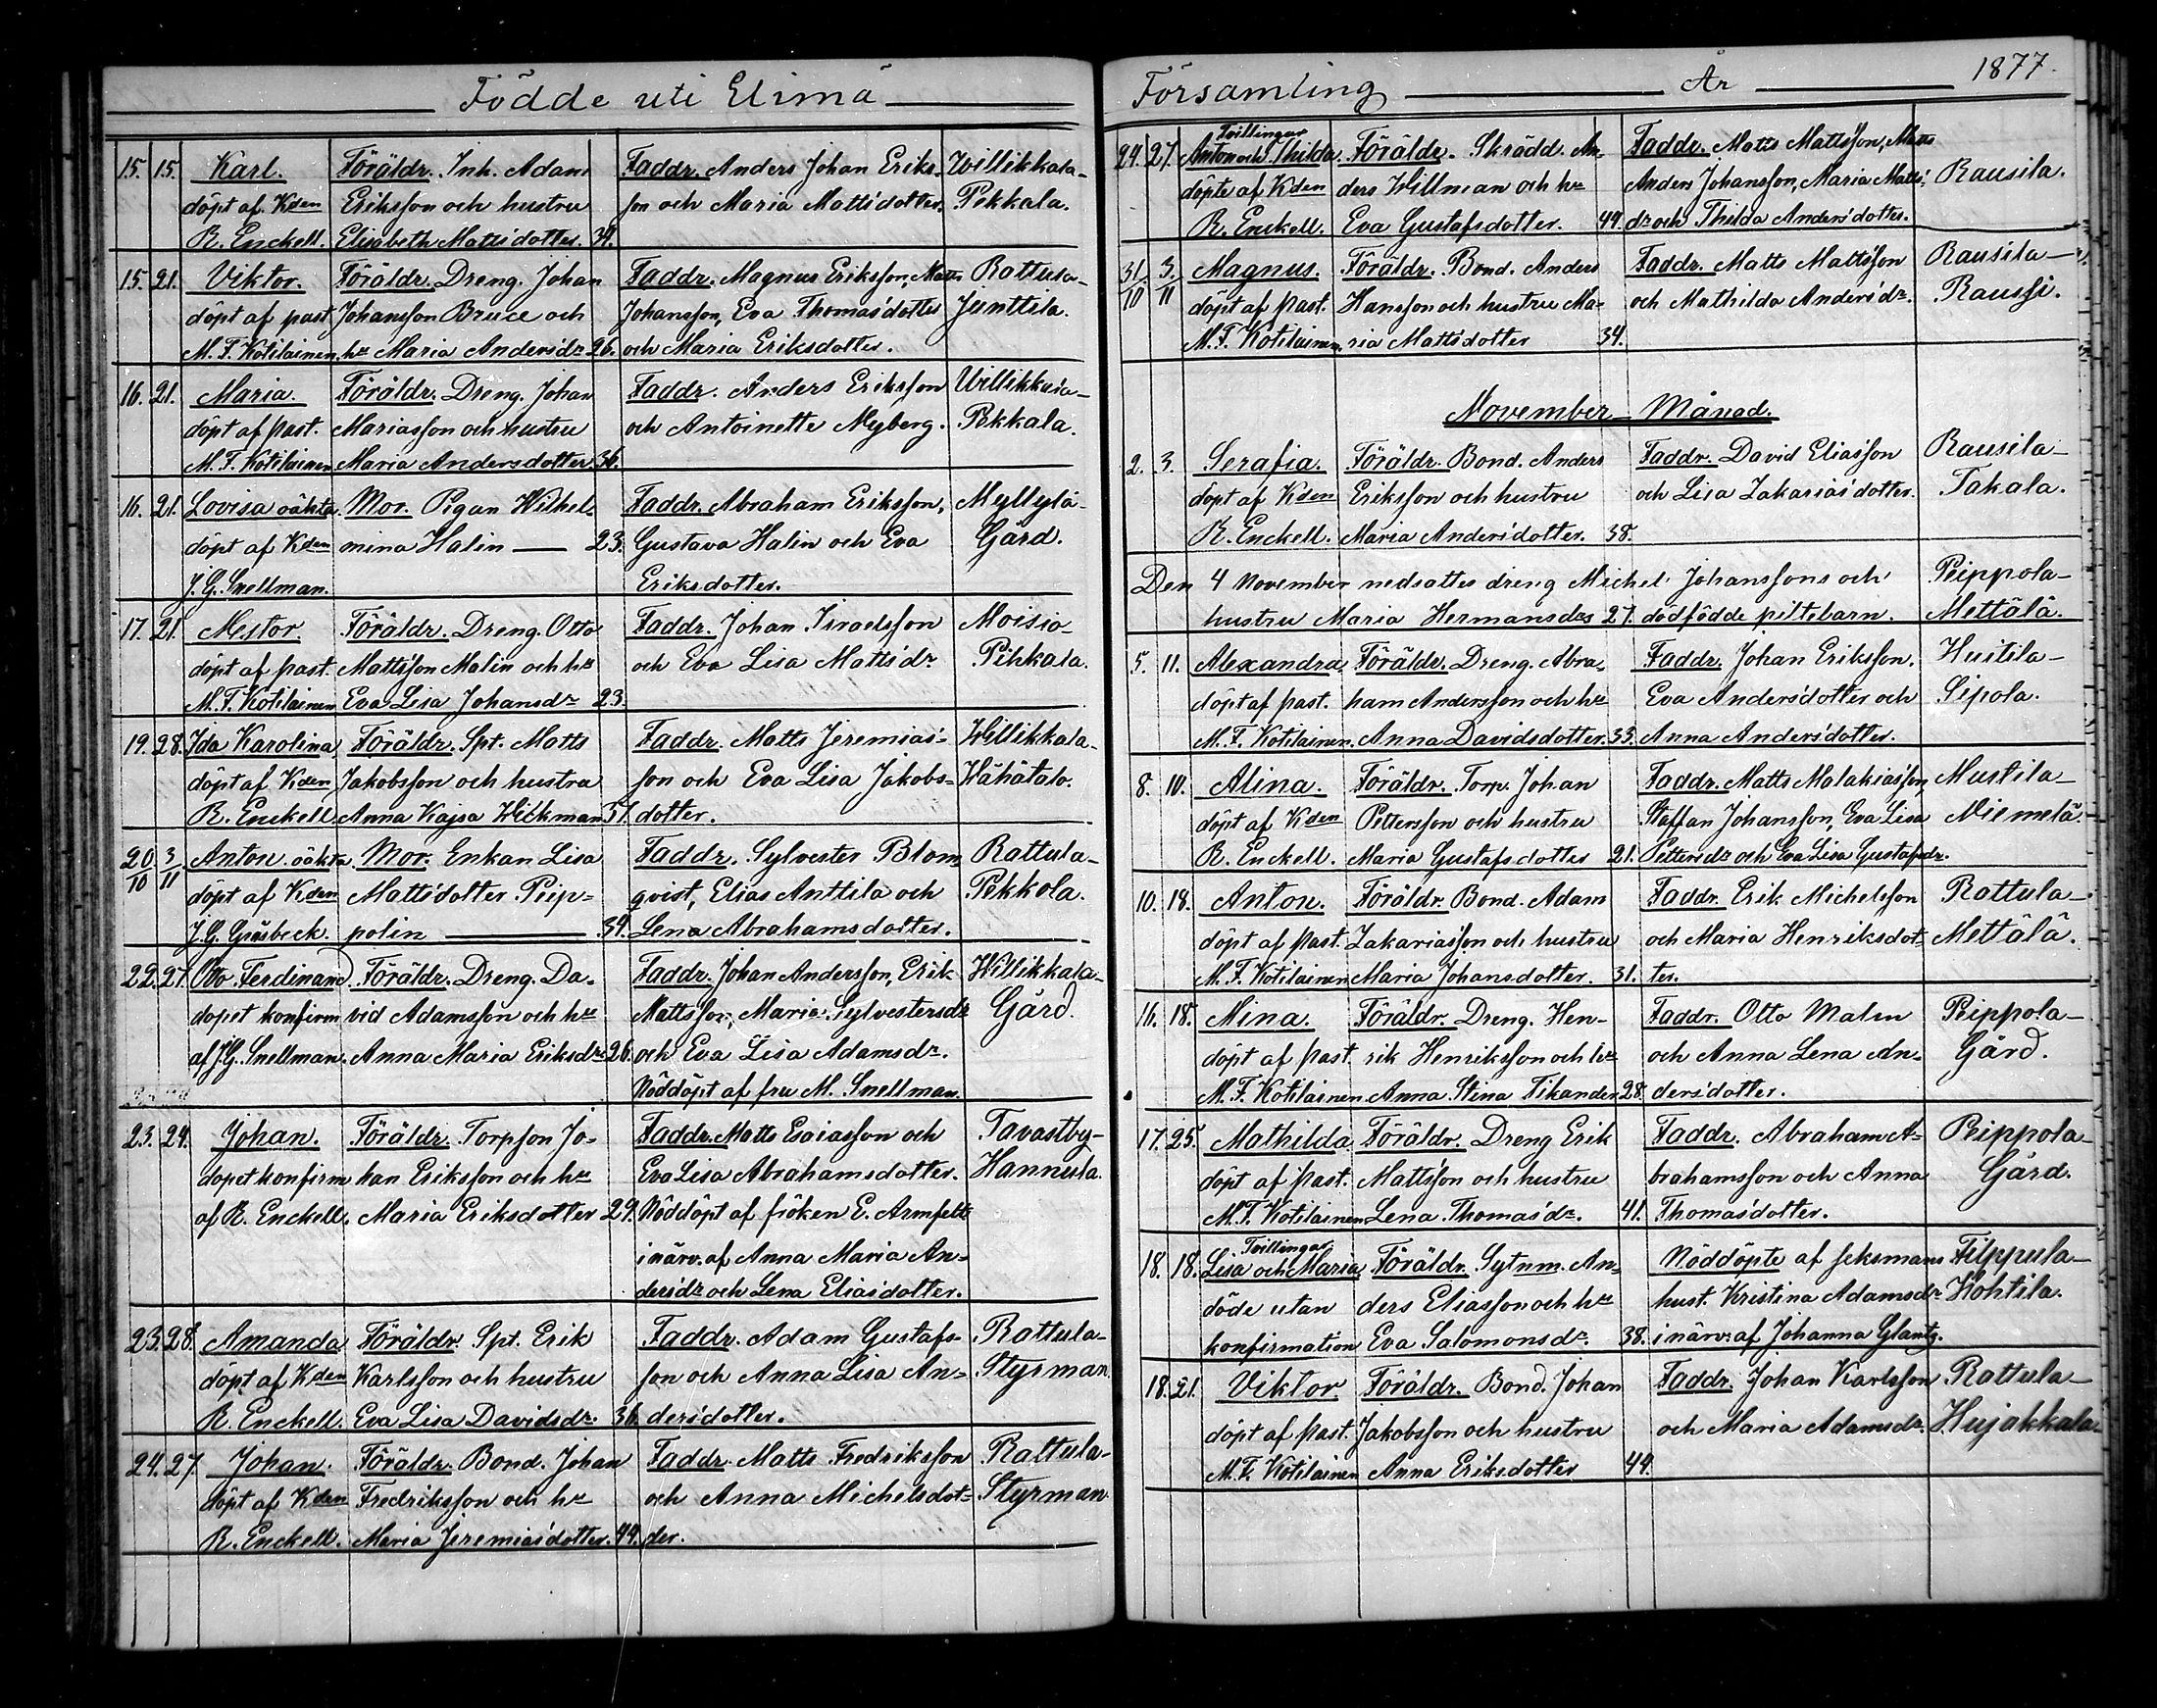 Födde uti Elimä
15. 15. Karl. Föräldr. Inh. Adam Faddr. Anders Johan Eriks- Willikkala-
döpt af Kden Eriksson och hustru son och Maria Mattsdotter. Pekkala.
R. Enckell. Elisabeth Mattsdotter. 34.
15. 21. Viktor. Föräldr. Dreng. Johan Faddr. Magnus Eriksson, Matts Rattula-
döpt af past. Johansson Bruce och Johansson, Eva Thomasdotter Junttila.
M. F. Kotilainen. hu Maria Andersdr 26. och Maria Eriksdotter.
16. 21. Maria. Föräldr. Dreng. Johan Faddr. Anders Eriksson Willikkala-
döpt af past. Mariasson och hustru och Antoinette Nyberg. Pekkala.
M. F. Kotilainen Maria Andersdotter 36.
16. 21. Lovisa oäkta. Mor. Pigan Wilhel- Faddr. Abraham Eriksson, Myllylä-
döpt af Kden mina Halin — 23. Gustava Halin och Eva Gård.
J. G. Snellman. Eriksdotter.
17. 21. Nestor. Föräldr. Dreng. Otto Faddr. Johan Israelsson Moisio-
döpt af past. Mattsson Malin och hu och Eva Lisa Mattsdr Pihkala.
M. F. Kotilainen Eva Lisa Johansdr 23.
19. 28. Ida Karolina, Föräldr. Spt. Matts Faddr. Matts Jeremias- Willikkala-
döpt af Kden Jakobsson och hustru son och Eva Lisa Jakobs- Wähätalo.
R. Enckell. Anna Kajsa Wickman 31. dotter.
20/10 3/11 Anton oäkta Mor. Enkan Lisa Faddr. Sylvester Blom- Rattula-
döpt af Kden Mattsdotter Piep- qvist, Elias Anttila och Pekkola.
J. G. Gråsbeck. polin — 34. Lena Abrahamsdotter.
22. 27. Otto Ferdinand Föräldr. Dreng. Da- Faddr. Johan Andersson, Erik Willikkala-
dopet konfirm vid Adamsson och hu Mattsson, Maria Sylvestersdr Gård.
af J. G. Snellman. Anna Maria Eriksdr 26. och Eva Lisa Adamsdr.
Nöddöpt af fru M. Snellman.
23. 24. Johan. Föräldr. Torpson Jo- Faddr. Matts Esaiasson och Tavastby-
dopet konfirm han Eriksson och hu Eva Lisa Abrahamsdotter. Hannula.
af R. Enckell. Maria Eriksdotter 29. Nöddöpt af fröken E. Armfelt
i närv. af Anna Maria An-
dersdr och Lena Eliasdotter.
23. 28. Amanda Föräldr. Spt. Erik Faddr. Adam Gustafs- Rattula-
döpt af Kden Karlsson och hustru son och Anna Lisa An- Styrman.
R. Enckell. Eva Lisa Davidsdr. 36. dersdotter.
24. 27. Johan. Föräldr. Bond. Johan Faddr. Matts Fredriksson Rattula-
döpt af Kden Fredriksson och hu och Anna Michelsdot- Styrman.
R. Enckell. Maria Jeremiasdotter. 44. der.
Församling År 1877.
Tvillingar
24. 27. Anton och Thilda Föräldr. Skrädd. An- Faddr. Matts Mattsson, Matts
döpte af Kden ders Willman och hu Anders Johansson, Maria Matts- Rausila.
R. Enckell. Eva Gustafsdotter. 44. dr och Thilda Andersdotter.
31/10 3/11 Magnus. Föräldr. Bond. Anders Faddr. Matts Mattsson Rausila-
döpt af past. Hansson och hustru Ma- och Mathilda Andersdr. Raussi.
M. F. Kotilainen. ria Mattsdotter 34.
November Månad.
2. 3. Serafia. Föräldr. Bond. Anders Faddr. David Eliasson Rausila-
döpt af Kden Eriksson och hustru och Lisa Zakariasdotter. Takala.
R. Enckell. Maria Andersdotter. 38.
Den 4 November nedsattes dreng Michel Johanssons och Peippola-
hustru Maria Hermansdrs 27. dödfödde piltebarn. Mettälä.
5. 11. Alexandra, Föräldr. Dreng. Abra- Faddr. Johan Eriksson. Huitila-
döpt af past. ham Andersson och hu Eva Andersdotter och Sipola.
M. F. Kotilainen. Anna Davidsdotter. 33. Anna Andersdotter.
8. 10. Alina. Föräldr. Torp. Johan Faddr. Matts Malakiasson, Mustila-
döpt af Kden Pettersson och hustru Staffan Johansson, Eva Lisa Niemelä.
R. Enckell. Maria Gustafsdotter 21. Pettersdr och Eva Lisa Gustafsdr.
10. 18. Anton. Föräldr. Bond. Adam Faddr. Erik Michelsson Rattula-
döpt af past. Zakariasson och hustru och Maria Henriksdot- Mettälä.
M. F. Kotilainen Maria Johansdotter. 31. ter.
16. 18. Nina. Föräldr. Dreng. Hen- Faddr. Otto Malin Peippola-
döpt af past. rik Henriksson och hu och Anna Lena An- Gård.
M. F. Kotilainen Anna Stina Tikander 28. dersdotter.
17. 25. Mathilda. Föräldr. Dreng Erik Faddr. Abraham A- Peippola-
döpt af past. Mattsson och hustru brahamsson och Anna Gård.
M. F. Kotilainen Lena Thomasdr. 41. Thomasdotter.
Tvillingar
18. 18. Lisa och Maria Föräldr. Sytnm. An- Nöddöpte af seksmans Filppula-
döde utan ders Eliasson och hu hust. Kristina Adamsdr Kohtila.
konfirmation Eva Salomonsdr. 38. i närv. af Johanna Glantz.
18. 21. Viktor Föräldr. Bond. Johan Faddr. Johan Karlsson Rattula-
döpt af past. Jakobsson och hustru och Maria Adamsdr. Hujakkala.
M. F. Kotilainen Anna Eriksdotter 44.